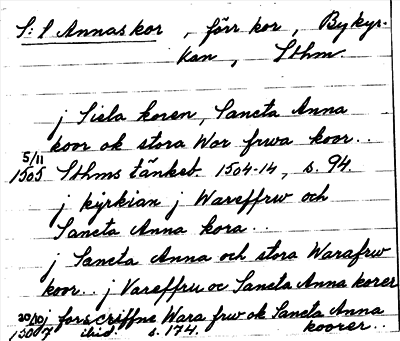 S:t Annas kor, förr kor, Bykyr-
kan, Sthm.
j Siela koren, Sancta Anna
koor ok stora Wor frwa koor..
5/11
1505 Sthms tänkeb. 1504-14, s. 94.
j kyrkian j Wareffrw och
Sancta Anna kora..
j Sancta Anna och stora Warafrw
koor.. j Vareffru oc Sancta Anna korer
20/10 j forscriffne Wara frw ok Sancta Anna
1507 ibid. s. 174. koorer..